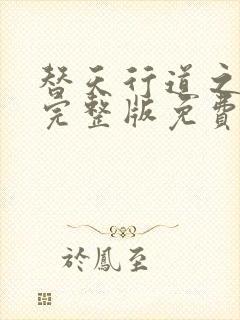 替天行道之
完整版免費
於鳳至